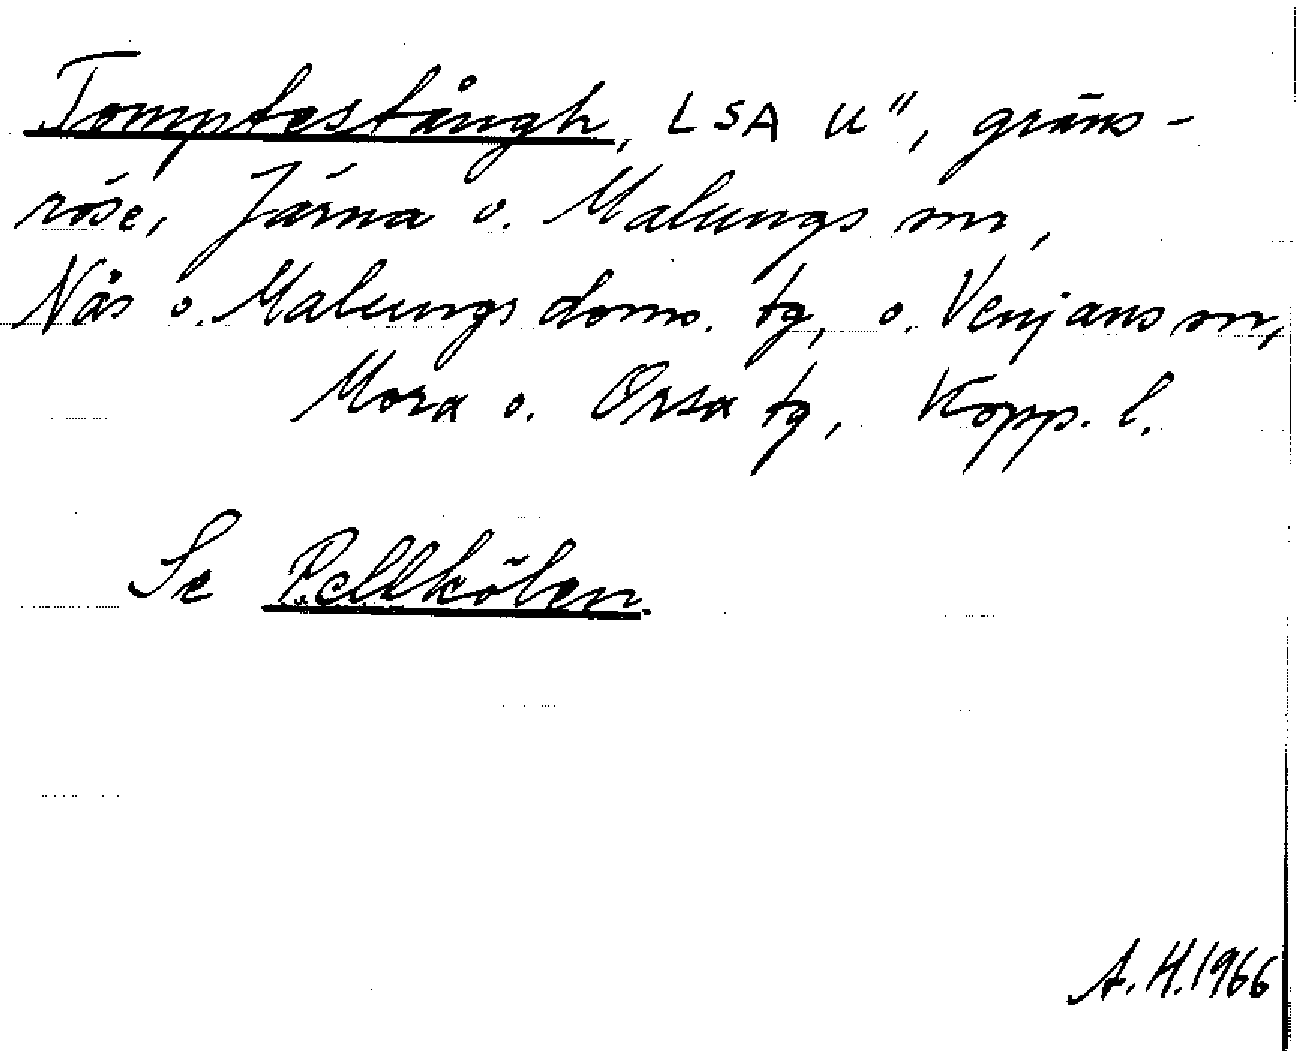 Tomptestångh, LSA U", gräns-
röse, Järna o. Malungs snr,
Nås o. Malungs doms. tg, o. Venjans sn,
Mora o. Orsa tg, Kopp. l.
Se Pellkölen.
A.H. 1966